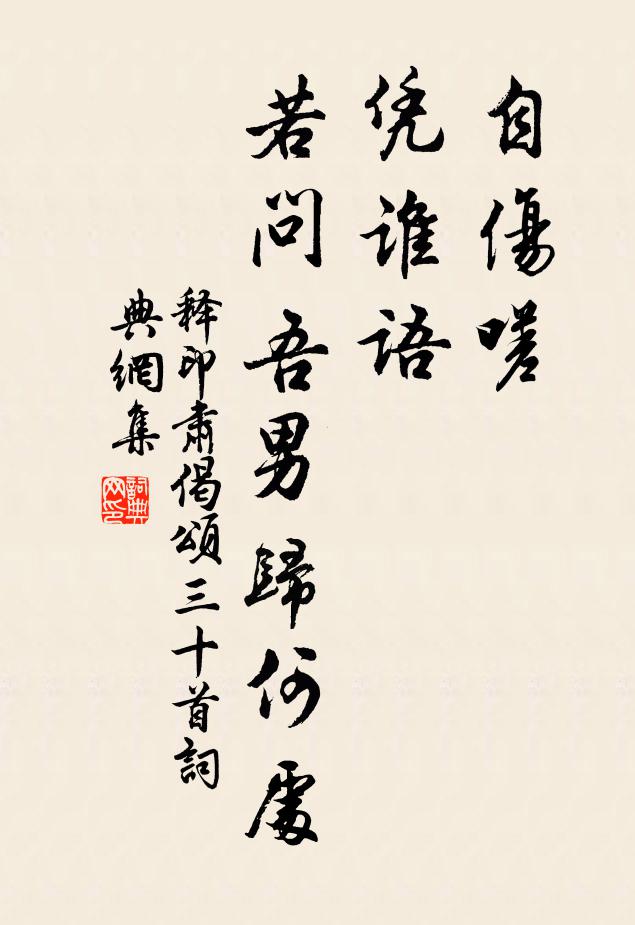 自傷嗟
凭誰語
若問吾男歸何處
释印肅偈頌三十首詞
典網集
詞典網印